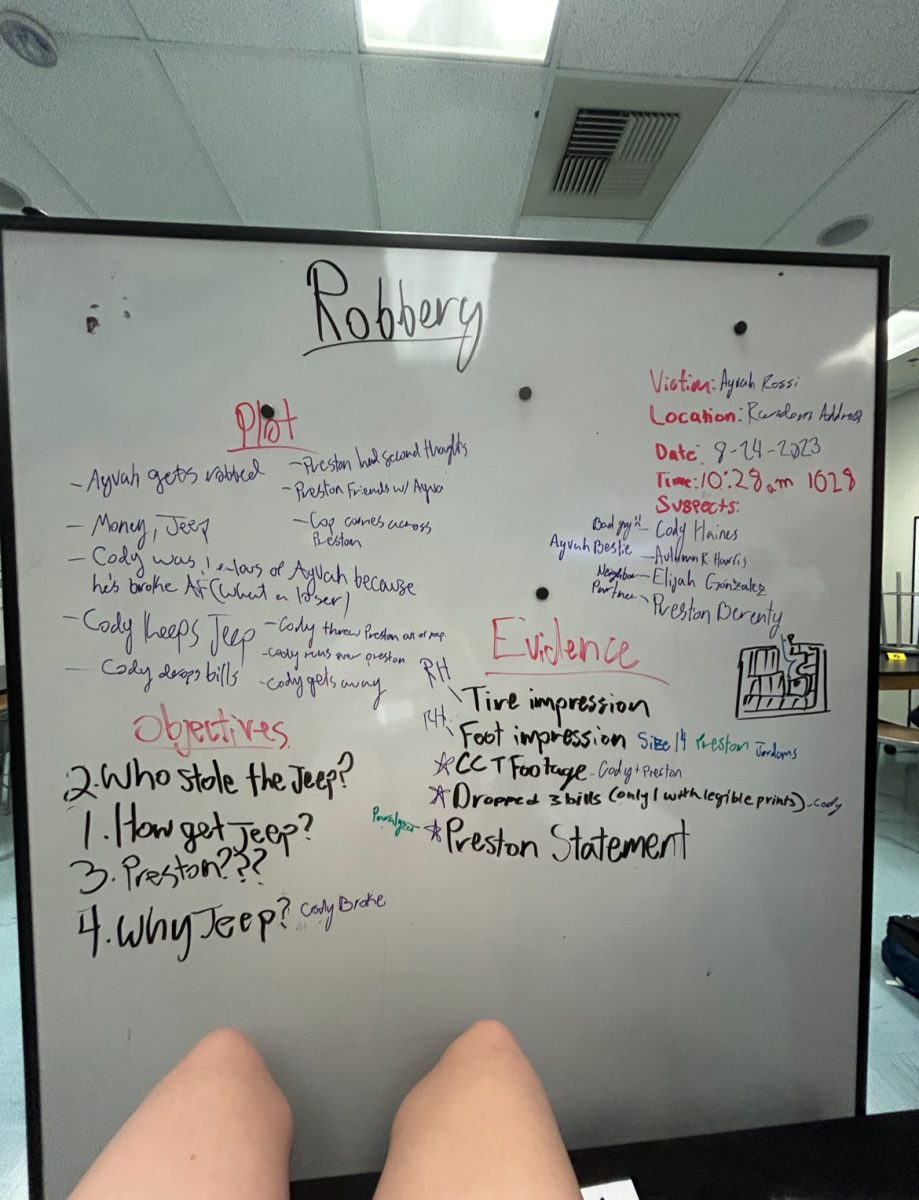 Robbery
Plot
- Ayvah gets robbed
- Money, Jeep
- Cody was jealous of Ayvah because
he's broke AF (what a loser)
- Cody keeps Jeep
- Cody drops bills
- Preston had second thoughts
- Preston Friends w/ Ayva
- Cop comes across
Preston
- Cody threw Preston out of jeep
- Cody runs over preston
- Cody gets away
Objectives
2. Who stole the Jeep?
1. How get Jeep?
3. Preston???
4. Why Jeep? Cody Broke
Victim: Ayvah Rossi
Location: Random Address
Date: 8-24-2023
Time: 10:28am 1028
Suspects:
Bad guy - Cody Haines
Ayvah Bestie - Autumn R. Harris
Neighbor - Elijah Gonzalez
Partner - Preston Derenty
Evidence
RH Tire impression
RH Foot impression Size 14 Preston Jordans
CCT Footage - Cody + Preston
Dropped 3 bills (only 1 with legible prints) - Cody
Paralyzed - Preston Statement